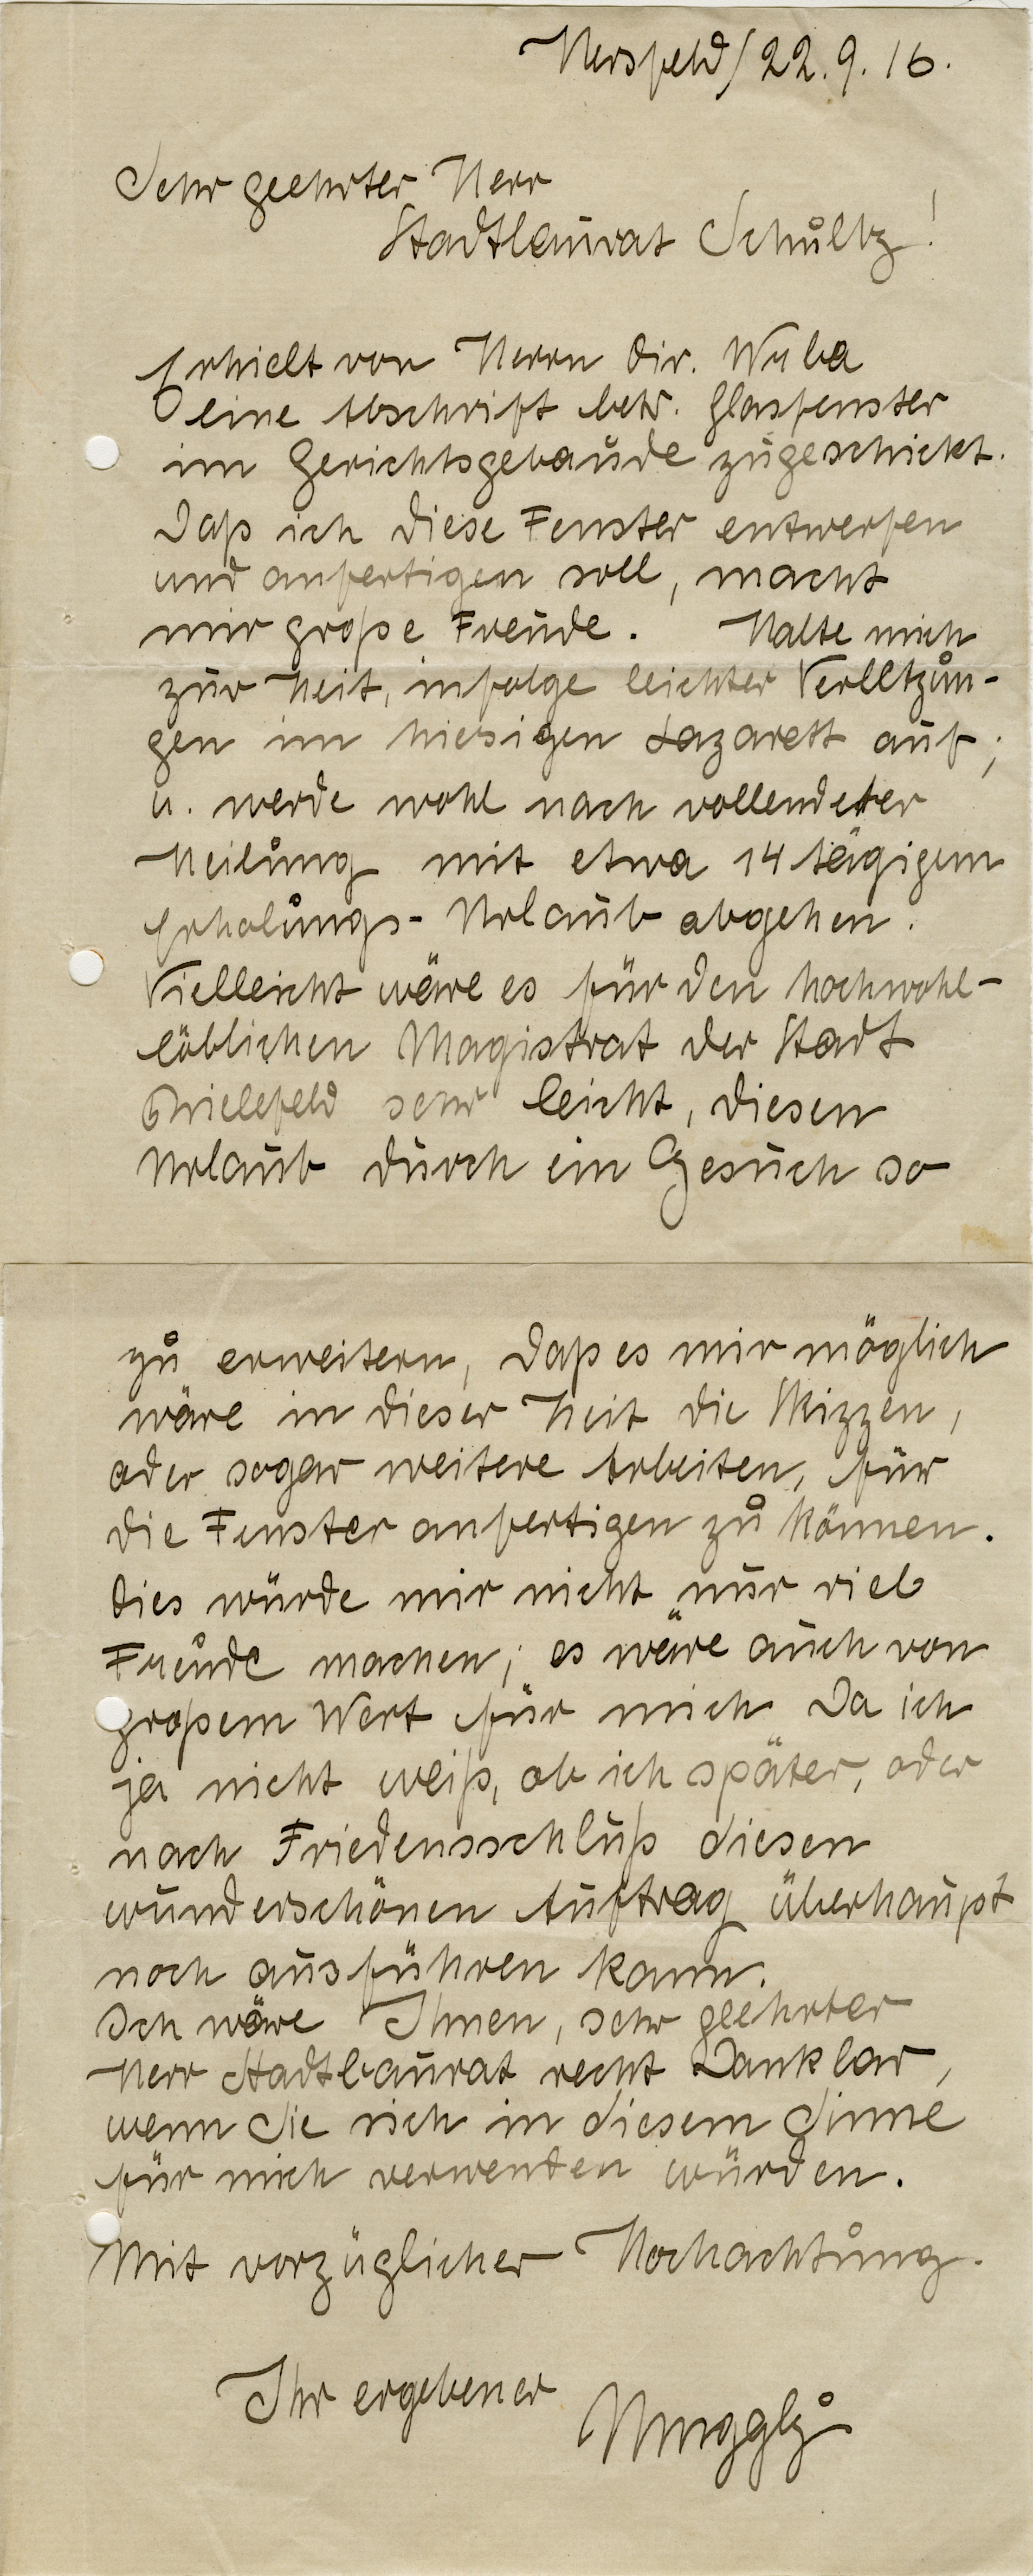 Hersfeld/22.9.16.
Sehr geehrter Herr
Stadtbaurat Schultz!
Erhielt von Herrn Dir. Wrba
eine Abschrift betr. Glasfenster
im Gerichtsgebäude zugeschickt.
Daß ich diese Fenster entwerfen
und anfertigen soll, macht
mir große Freude. Halte mich
zur Zeit, infolge leichter Verletzun-
gen im hiesigen Lazarett auf;
u. werde wohl nach vollendeter
Heilung mit etwa 14 tägigem
Erholungs- Urlaub abgehen.
Vielleicht wäre es für den hochwohl-
löblichen Magistrat der Stadt
Bielefeld sehr leicht, diesen
Urlaub durch ein Gesuch so
zu erweitern, daß es mir möglich
wäre in dieser Zeit die Skizzen,
oder sogar weitere Arbeiten, für
die Fenster anfertigen zu können.
Dies würde mir nicht nur viel
Freude machen; es wäre auch von
großem Wert für mich Da ich
ja nicht weiß, ob ich später, oder
nach Friedensschluß diesen
wunderschönen Auftrag überhaupt
noch ausführen kann.
Ich wäre Ihnen, sehr geehrter
Herr Stadtbaurat recht Dankbar,
wenn Sie sich in diesem Sinne
für mich verwenden würden.
Mit vorzüglicher Hochachtung.
Ihr ergebener